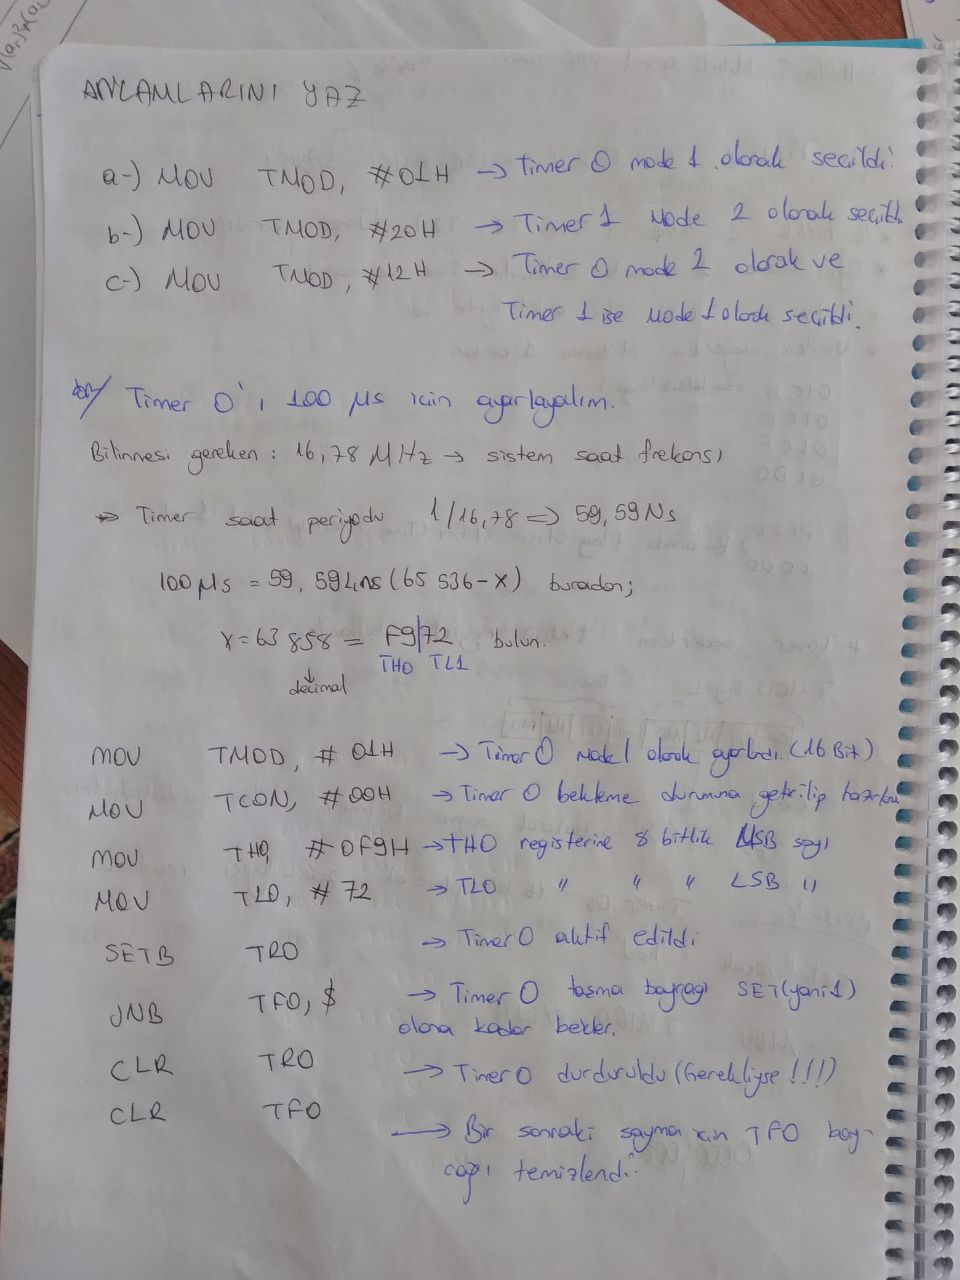 ANLAMLARINI YAZ
a-) MOV TMOD, #01H → Timer 0 mode 1 olarak secildi.
b-) MOV TMOD, #20H → Timer 1 Mode 2 olarak secildi.
c-) MOV TMOD, #12H → Timer 0 mode 2 olarak ve
Timer 1 ise Mode 1 olarak secildi.
Timer 0'ı 100 µs icin ayarlayalım.
Bilinmesi gereken : 16,78 MHz → sistem saat frekansı
Timer saat periyodu 1/16,78 => 59,59 Ns
100 µs = 59,594 ns (65 536 - X) buradan;
X = 63 858 = F9|72 bulun.
TH0 TL1
↓
decimal
MOV TMOD, # 01H → Timer 0 Mode 1 olarak ayarlandı. (16 Bit)
MOV TCON, #00H → Timer 0 bekleme durumuna getirilip
MOV TH0, #0F9H → TH0 registerine 8 bitlik MSB sayı
MOV TL0, # 72 → TL0 " " " LSB "
SETB TR0 → Timer 0 aktif edildi
JNB TF0, $ → Timer 0 tasma bayragı SET (yani 1)
olana kadar bekler.
CLR TR0 → Timer 0 durduruldu (Gerekliyse !!!!)
CLR TF0
→ Bir sonraki sayma icin TF0 bay-
ragı temizlendi.